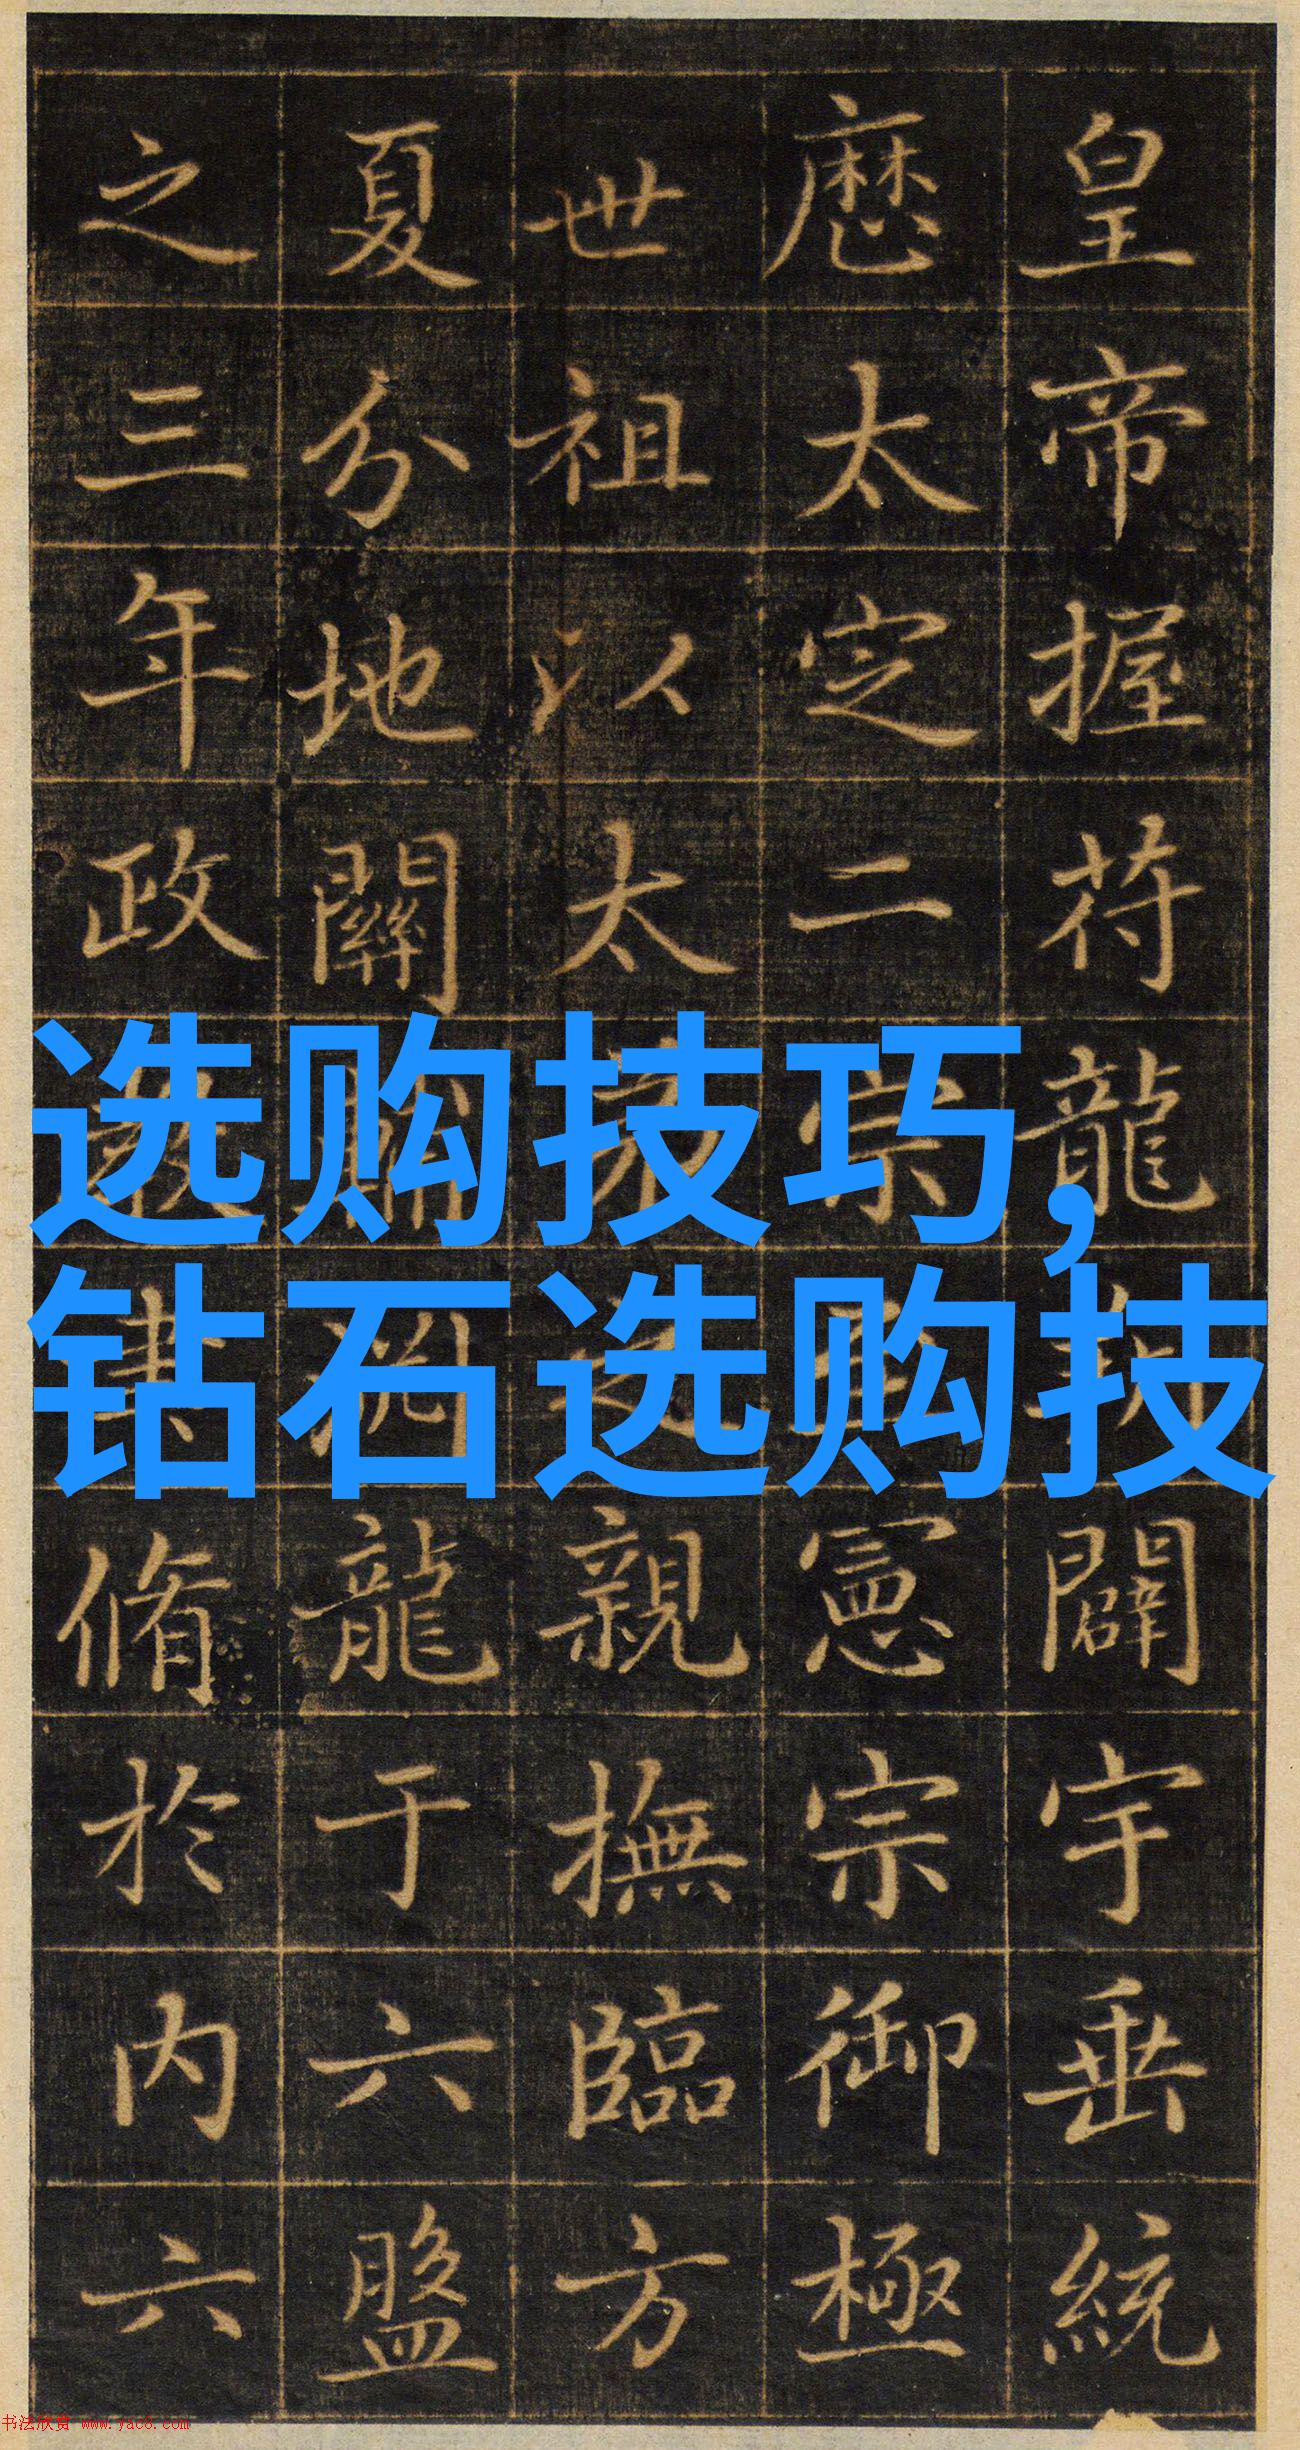 皇帝握符龍闢宇垂統
歷太定二宗憲宗御極
世祖以太之親撫臨方
夏分地關龍于六盤
之三年政教脩於內六
选购技巧,
钻石选购技
书法欣赏 www.yac8.com